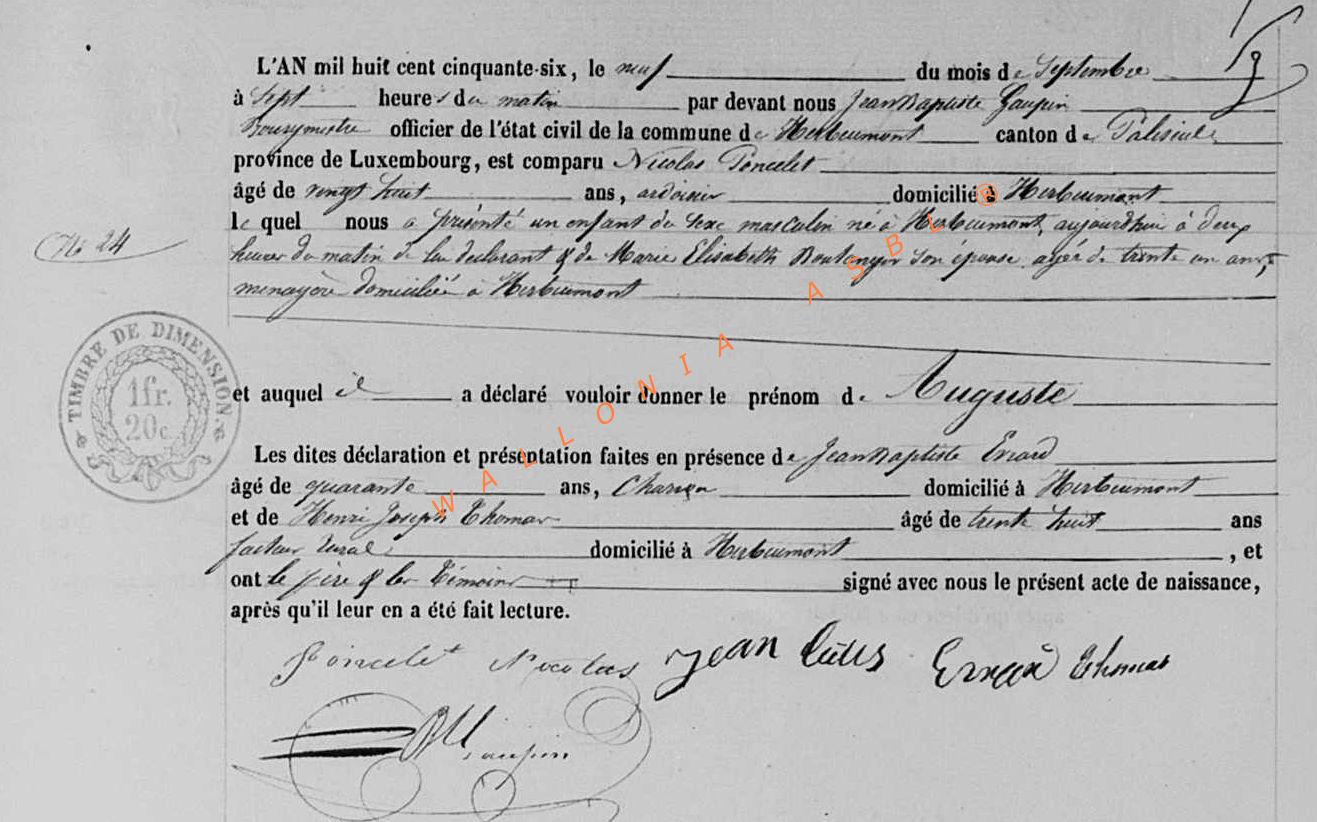 L'AN mil huit cent cinquante-six, le neuf du mois de Septembre
à Sept heures du matin par devant nous Jean Baptiste Gaupin
Bourgmestre officier de l'état civil de la commune de Herbeumont canton de Paliseul
province de Luxembourg, est comparu Nicolas Poncelet
âgé de vingt huit ans, ardoisier domicilié à Herbeumont
le quel nous a présenté un enfant du sexe masculin né à Herbeumont, aujourdhui à deux
N° 24
heures du matin de lui déclarant & de Marie Elisabeth son épouse agée de trente un ans,
menagère domiciliée à Herbeumont
TIMBRE DE DIMENSION.
1fr.
20c.
et auquel il a déclaré vouloir donner le prénom de Auguste
Les dites déclaration et présentation faites en présence de Jean Baptiste Evrard
âgé de quarante ans, domicilié à Herbeumont
et de Henri Joseph Thomas âgé de trente huit ans
facteur rural domicilié à Herbeumont, et
ont le père & les témoins signé avec nous le présent acte de naissance,
après qu'il leur en a été fait lecture.
Poncelet Nicolas jean Thomas
Gaupin
WALLONIA ASBL ®